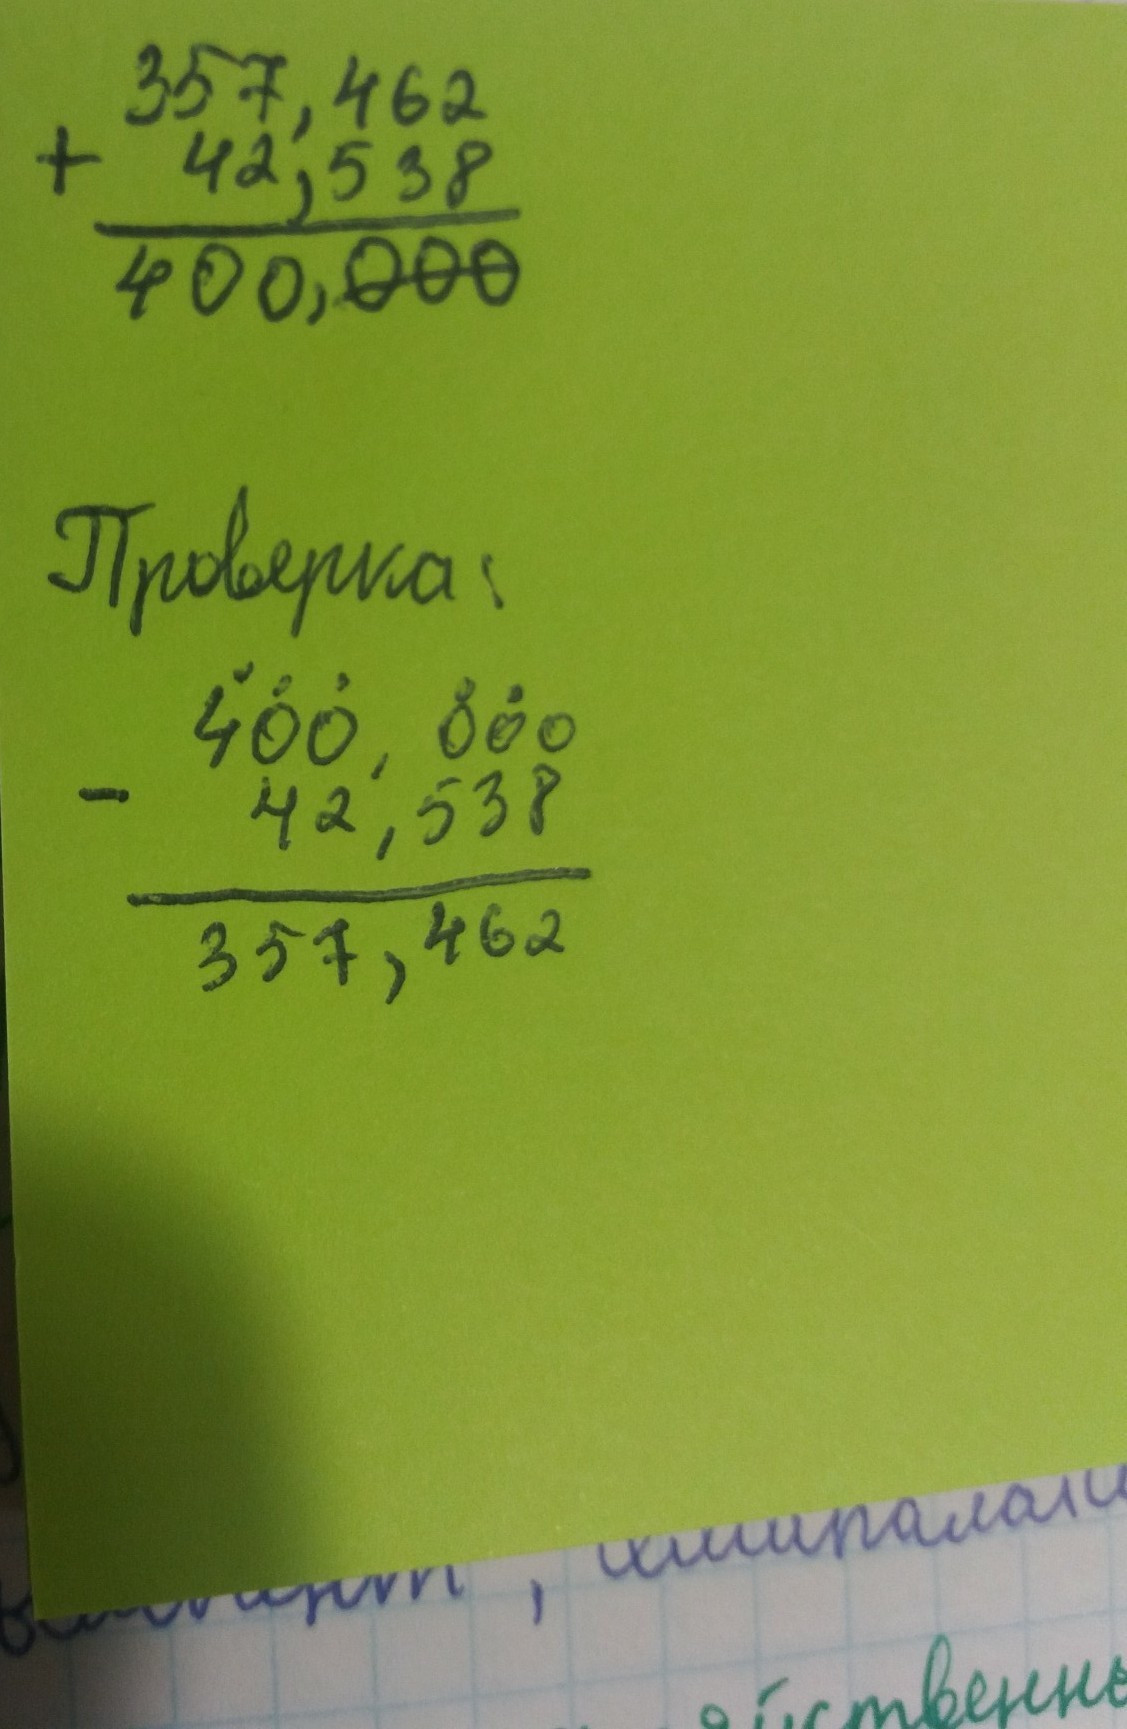 357,462
+ 42,538
400,000
Проверка:
400,000
- 42,538
357,462